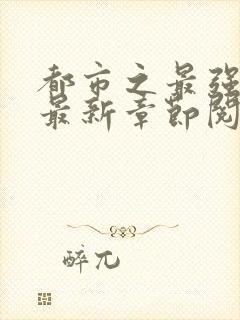 都市之最强
最新章节阅
醉兀